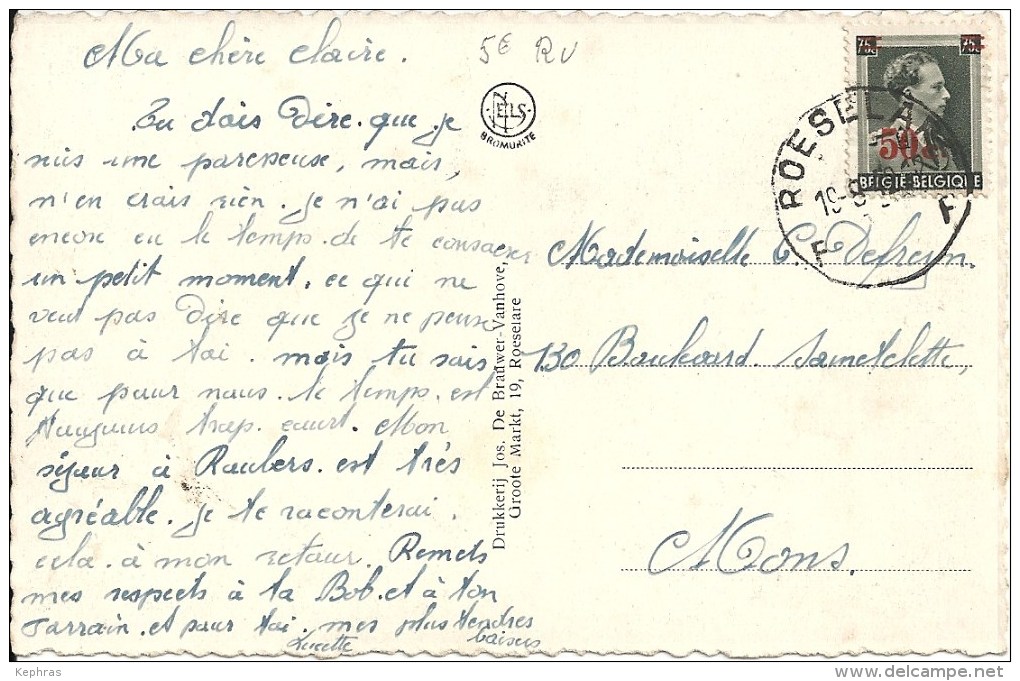 Ma chère Claire.
5€ RV
Tu dois Dire. que je
suis une paresseuse, mais,
n'en crois rien. Je n'ai pas
encore eu le temps. de te consacrer
un petit moment. ce qui ne
veut pas Dire que je ne pense
pas à toi. mais tu sais
que pour nous. le temps. est
toujours trop. court. Mon
séjour à Roulers. est très
agréable. je te raconterai.
cela. à mon retour. Remets
mes respects à ta Bob. et à ton
Parrain. et pour toi. mes plus tendres
baisers
Lucette
NELS
BROMURITE
Drukkerij Jos. De Brauwer-Vanhove,
Groote Markt, 19, Roeselare
75c 75c
50c
BELGIE-BELGIQUE
ROESELA
F F
Mademoiselle C. Defresn.
130 Boulevard. Sainctelette,
Mons.
Kephras
www.delcampe.net